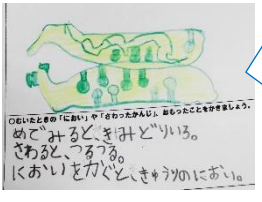 ○むいたときの「におい」や「さわったかんじ」、おもったことをかきましょう。
めでみると、きみどりいろ。
さわると、つるつる。
においをかぐと、きゅうりのにおい。